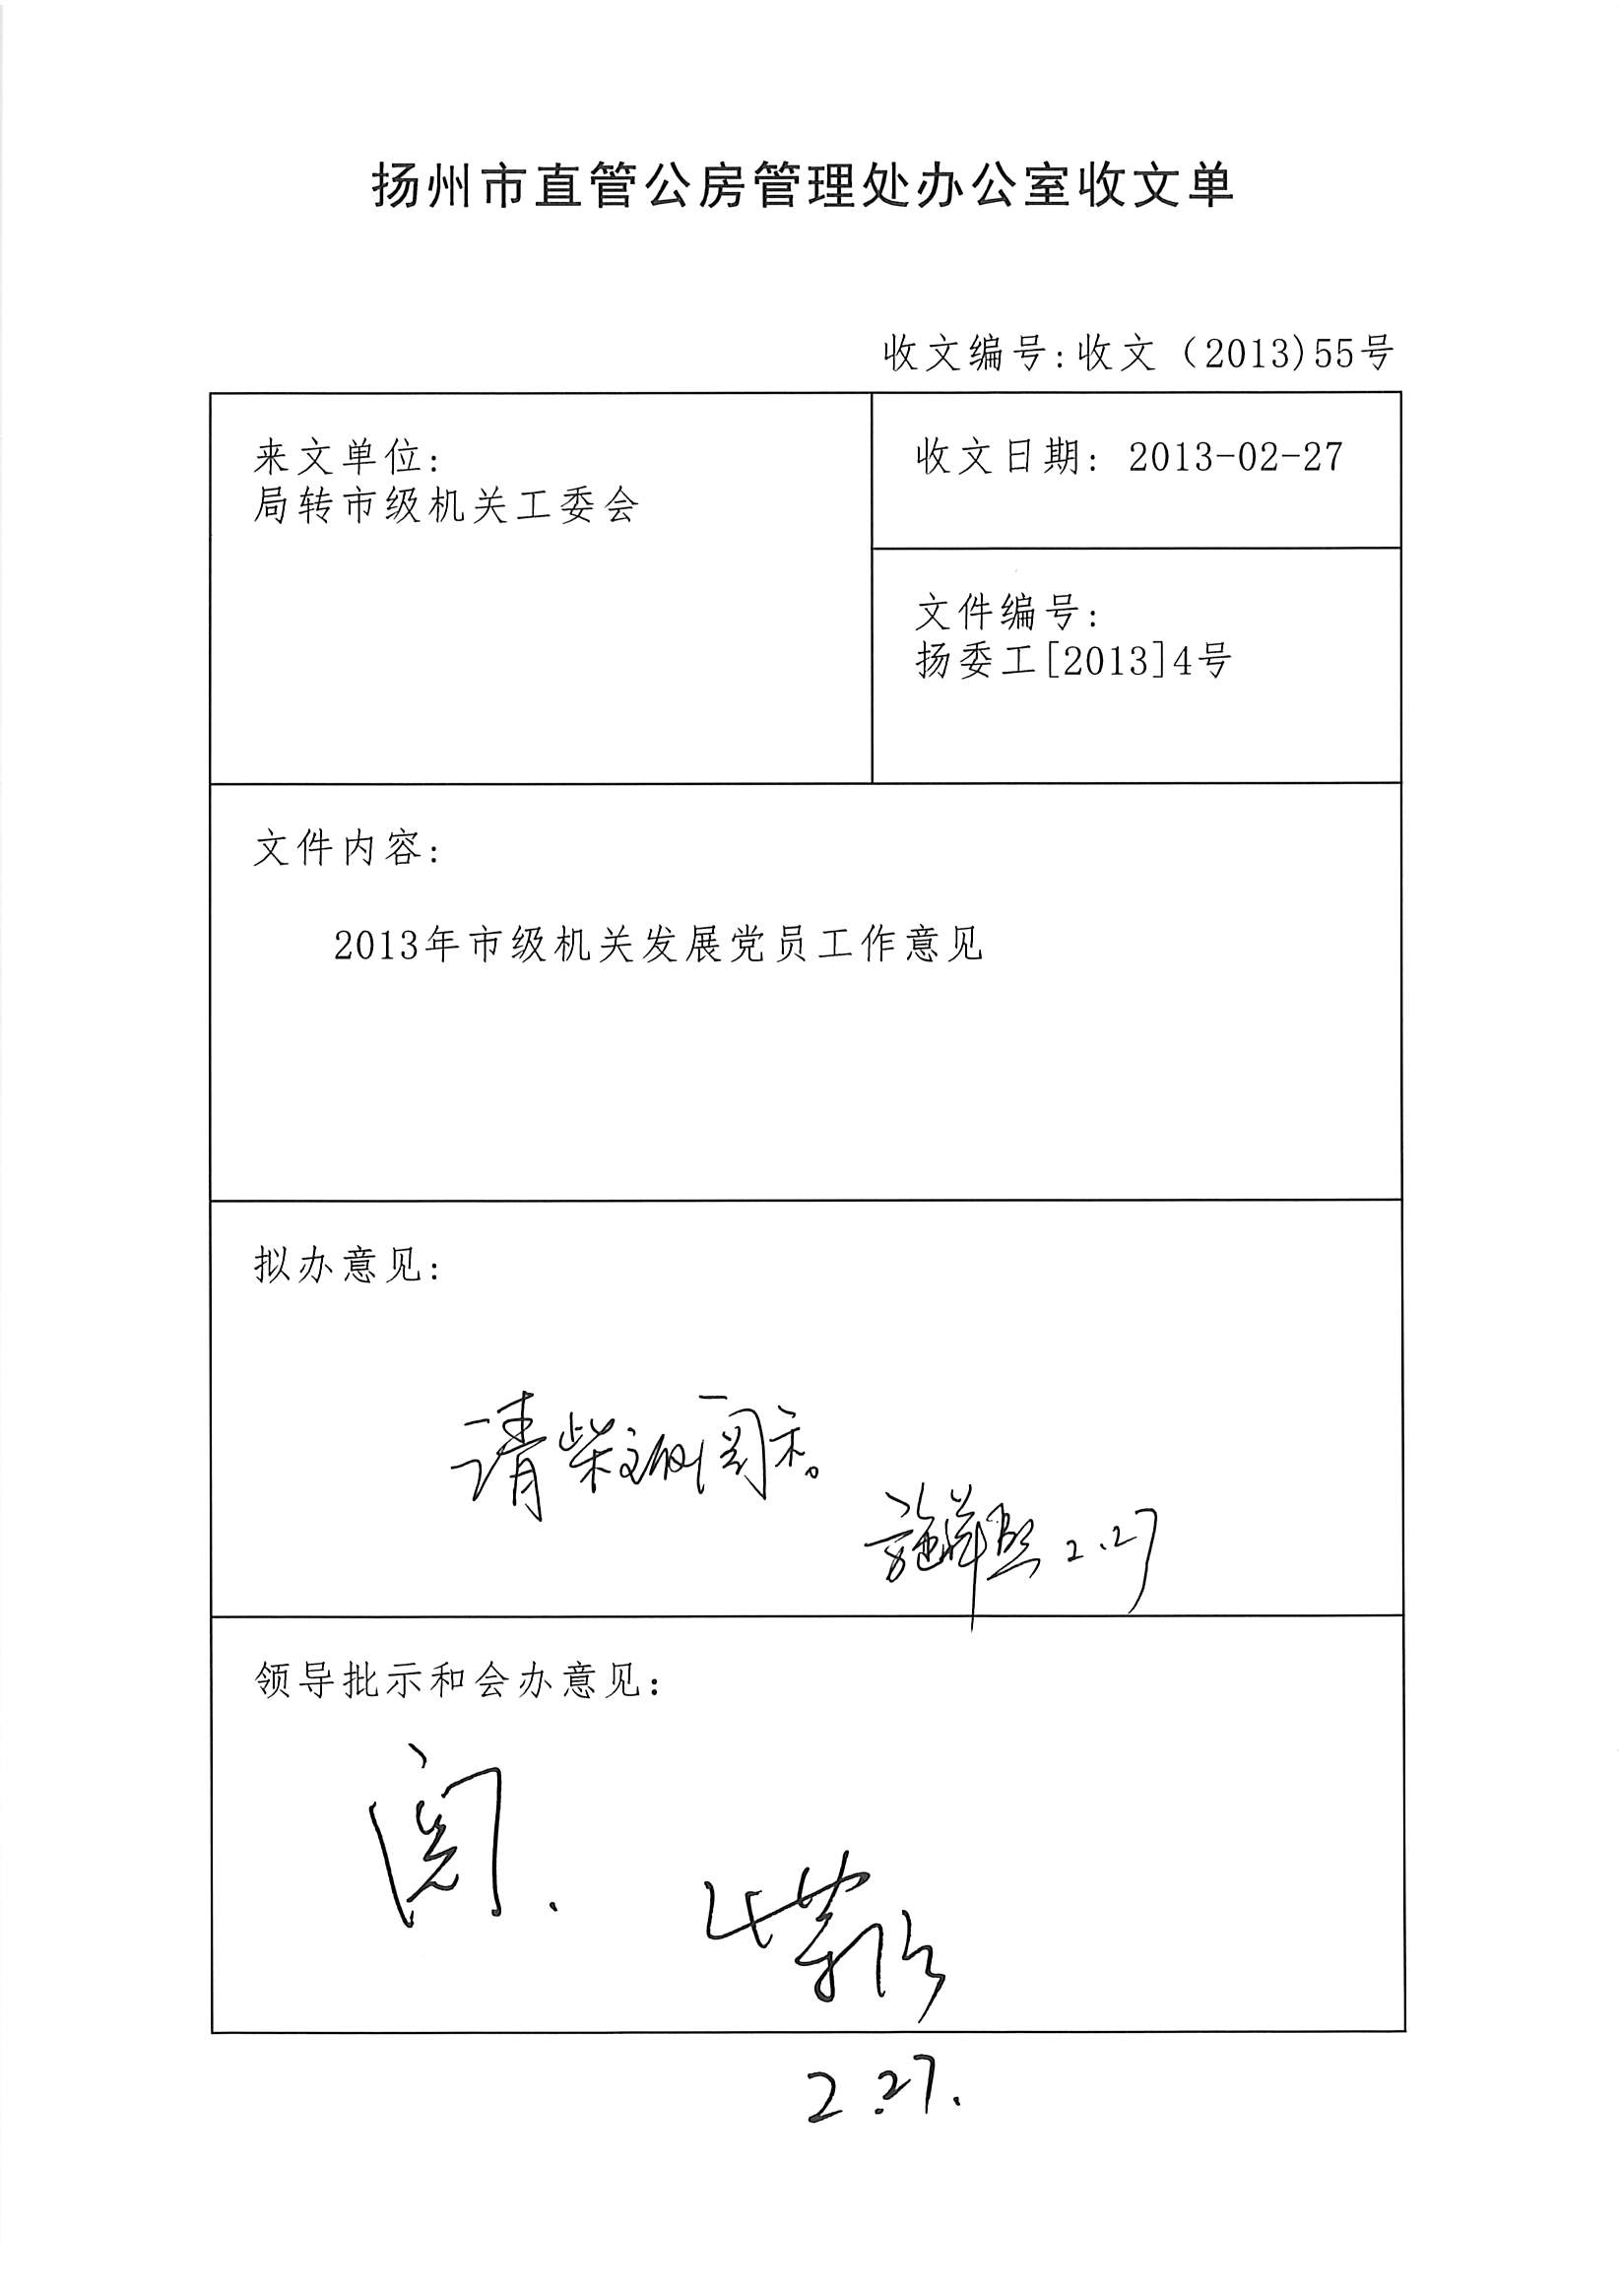 扬州市直管公房管理处办公室收文单
收文编号:收文（2013)55号
来文单位:
局转市级机关工委会
收文日期: 2013-02-27
文件编号:
扬委工[2013]4号
文件内容:
2013年市级机关发展党员工作意见
拟办意见:
请柴 阅示。
施 2.27
领导批示和会办意见:
阅.
2.27.